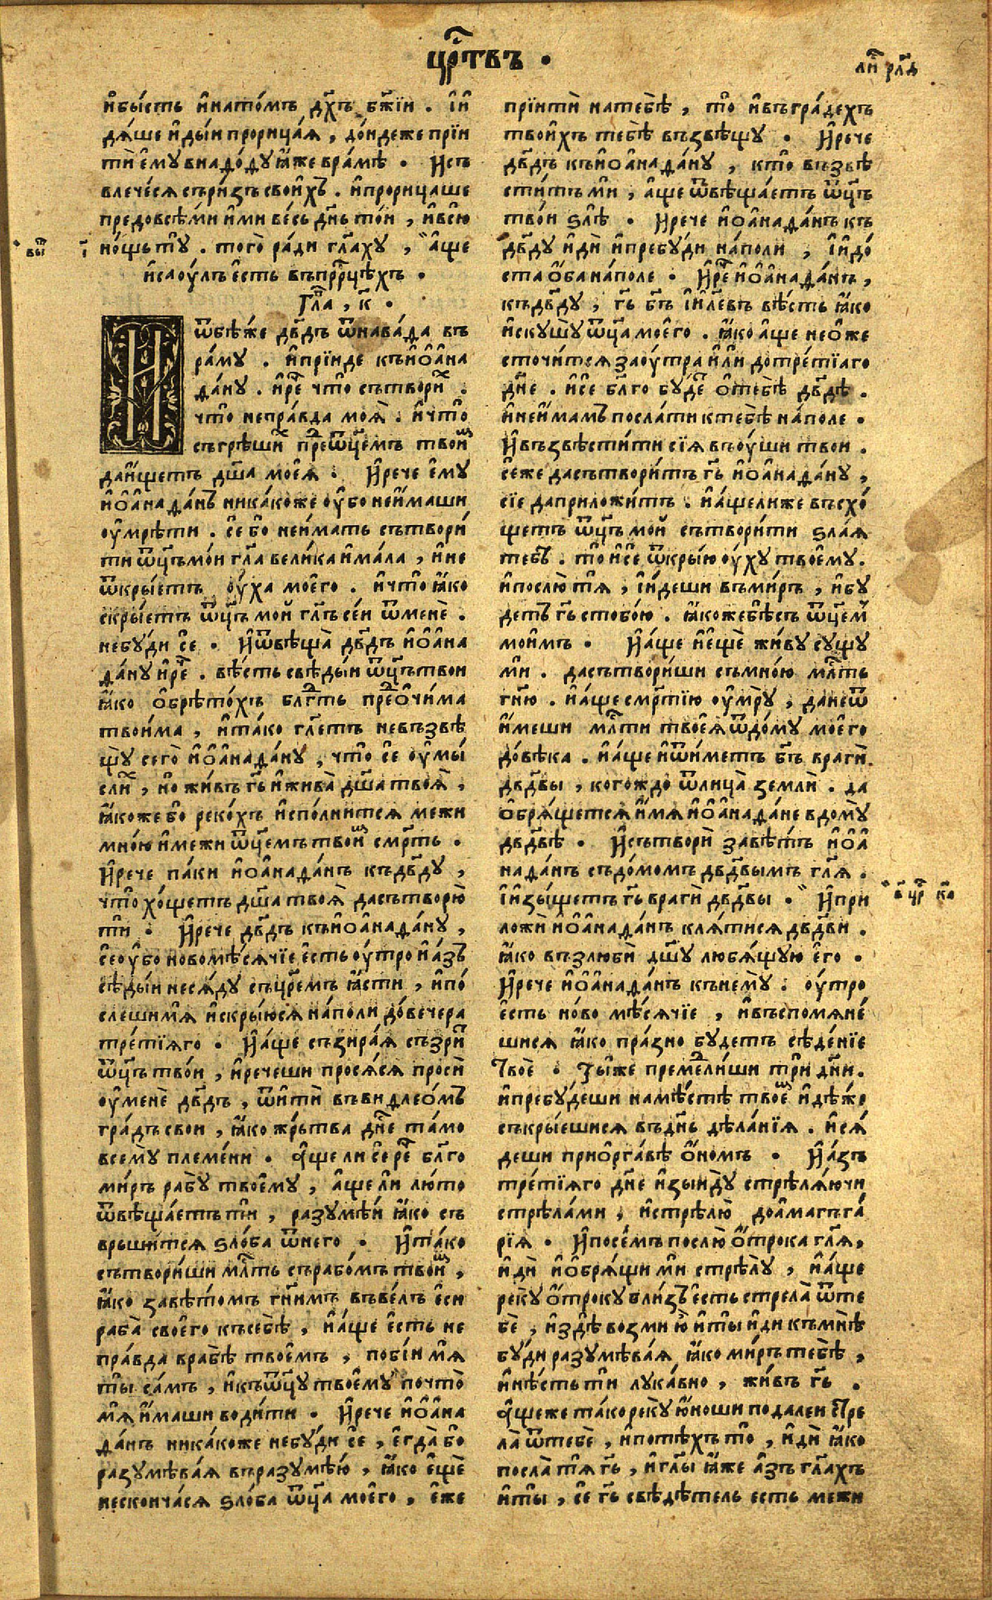 цр҃твъ .
ли҃ рл҃д
и҆бы́сть и҆нато́мъ дх҃ъ бж҃їи . і҆и҆
дя́ше и҆ды́и прорица́я , до́ндеже прїи
ти̑ е҆му внада́ду ꙗ҆́же вра́мѣ . И҆съ
влече́ся съри́зъ свои́хъ . и҆прорица́ше
предовсѣ́ми и҆́ми ве́сь дн҃ь то́и , и҆всю̀
но́щь ту̀ . того̀ ра́ди гл҃аху , а҆́ще
и҆сао́улъ е҆́сть въпррⷪ҇цѣхъ .
вы҃ і҃
Гла҃ , к҃ .
И
ѿбѣ́же дв҃дъ ѿнава́да въ
ра́му . и҆прїи́де къи҆ѻ҆а́на
да́ну . и҆рече҃ что̀ сътвори́х .
что̀ непра́вда моя̀ . и҆что̀
съгрѣши́х предъѿц҃емъ твои́м
даи҆́щетъ дш҃а моея̀ . И҆рече е҆му
и҆ѻ҆анада́нъ ника́коже о҆у́бо неи҆́маши
о҆умрѣ́ти . се҆ бо неи҆́мать сътвори́
ти ѿц҃ъмо́и гл҃а вели́ка и҆ма́ла , и҆не
ѿкры́етъ о҆у́ха моего̀ . и҆что̀ ꙗ҆́ко
скры́етъ ѿц҃ъ мо́й гл҃ъ се́и ѿменѐ .
небу́ди се҆ . И҆ѿвѣща̀ дв҃дъ и҆ѻ҆а́на
да́ну и҆рече҃ . вѣ́сть свѣды́и ѿц҃ътвои
ꙗ҆́ко ѻ҆брѣто́хъ блгⷣть предъѻ҆чи́ма
твои́ма , и҆та́ко гл҃етъ невъзвѣ
щу̀ сего̀ и҆ѻ҆анада́ну , что̀ се҆ о҆умы́
сли́х , но жи́въ гь҃ и҆жива̀ дш҃а твоя̀ ,
ꙗ҆́коже бо реко́хъ и҆спо́лнится межи
мно́ю и҆межи ѿц҃емъ твои́м сме́рть .
И҆рече па́ки и҆ѻ҆анада́нъ къдв҃ду ,
что̀ хо́щетъ дш҃а твоя̀ дасътворю̀
ти . И҆рече дв҃дъ къи҆ѻ҆анада́ну ,
сео҆у́бо новомѣ́сячїе е҆́сть о҆у́тро и҆а́зъ
сѣды́и неся́ду съцр҃емъ ꙗ҆́сти , и҆по́
слешимя̀ и҆скры́юся напо́ли до́вечера
тре́тїяго . И҆а҆́ще съзира́я съзри́т
ѿц҃ъ тво́и , и҆рече́ши прося́ся проси́
о҆уменѐ дв҃дъ , ѿити́ въви́длео́мъ
гра́дъ свои , ꙗ҆́ко жръ́тва дн҃е та́мо
всему̀ племе́ни . а҆́ще ли се҆ рече҃ бл҃го
ми́ръ рабу̀ твоему̀ , а҆́ще ли лю́то
ѿвѣща́етъ ти , разумѣ́и ꙗ҆́ко съ
врьши́тся ѕло́ба ѿнего . И҆та́ко
сътвори́ши млⷭ҇ть сърабо́мъ твои́м ,
ꙗ҆́ко завѣ́томъ гн҃имъ въве́лъ е҆си
раба̀ своего къ се́бѣ , и҆а҆́ще е҆́сть не
пра́вда врабѣ̀ твое́мъ , поби́и мя̀
ты̀ са́мъ , и҆къѿц҃у твоему̀ почто̀
мя̀ и҆́маши води́ти . И҆рече и҆ѻ҆ана
да́нъ ника́коже небу́ди се҆ , е҆гда̀ бо
разумѣва́я въразумѣ́ю , ꙗ҆́ко е҆щѐ
нескон́чася ѕло́ба ѿц҃а моего̀ , е҆́же
прїитѝ натебѐ , то̀ и҆въгра́дехъ
твои́хъ тебѣ̀ възвѣщу̀ . И҆рече
дв҃дъ къи҆ѻ҆анада́ну , кто̀ възвѣ
сти́тъ ми , а҆́ще ѿвѣща́етъ ѿц҃ъ
тво́и ѕлѣ̀ . И҆рече и҆ѻ҆анада́нъ къ
дв҃ду и҆дѝ и҆пребу́ди напо́ли , і҆и҆до́
ста ѻ҆́ба напо́ле . И҆рече҃ и҆ѻ҆анада́нъ ,
къдв҃ду , гь҃ бг҃ъ і҆и҃левъ вѣ́сть ꙗ҆́ко
и҆скушу̀ ѿц҃а моего̀ . ꙗ҆́ко а҆́ще неѻ҆́же
сточи́тся зао҆у́тра и҆лѝ дотре́тїаго
дн҃е . и҆се҆ бл҃го бу́дет ѻ҆тебѣ̀ дв҃дѣ .
и҆неи҆́мамъ посла́ти ктебѣ̀ напо́ле .
И҆възвѣсти́ти сїя̀ въо҆́уши твои .
се҆же дасътвори́тъ гь҃ и҆ѻ҆анада́ну ,
сїѐ даприложи́тъ . и҆а҆́щелиже въсхо́
щетъ ѿц҃ъ мо́й сътвори́ти ѕла́я
тебѣ̀ . то̀ и҆се҆ ѿкры́ю о҆у́ху твоему .
и҆послю̀ тя̀ , і҆и҆́деши въми́ръ , и҆бу́
детъ гь҃ стобо́ю . ꙗ҆́кожебѣ́съ ѿц҃ем
мои́мъ . И҆а҆́ще и҆е҆щѐ жи́ву су́щу
ми . дасътвори́ши съмно́ю млⷭ҇ть
гн҃ю . и҆а҆́ще сме́ртїю о҆умру̀ , данеѿ
и҆́меши млⷭ҇ти твоея̀ ѿдо́му моего
до́вѣка . и҆а҆́ще и҆ѿи́метъ бг҃ъ врагѝ
дв҃двы , кого́ждо ѿлица̀ землѝ . да
ѻ҆бря́щется и҆́мя и҆ѻ҆анада́не вдому̀
дв҃двѣ . И҆сътворѝ завѣ́тъ и҆ѻ҆а
нада́нъ съдо́момъ дв҃двымъ гл҃я .
і҆и҆зы́щетъ гь҃ врагѝ дв҃двы . И҆при
в҃ цр҃ ка҃
ложѝ и҆ѻ҆анада́нъ кля́тися дв҃дви .
ꙗ҆́ко възлюбѝ дш҃у любя́щую е҆го .
И҆рече и҆ѻ҆анада́нъ кънему̀ . о҆у́тро
е҆́сть но́во мѣ́сячїе , и҆въспомяне́
шися ꙗ҆́ко пра́зно бу́детъ сѣде́нїе
твоѐ . Ты́же премедли́ши трѝ дн҃и .
и҆пребу́деши намѣ́стѣ твое́м и҆дѣ́же
съкры́ешися въдн҃ь дѣла́нїя . и҆ся́
деши приѻ҆рга́вѣ ѻ҆́номъ . И҆а́зъ
тре́тїяго дн҃е и҆зы́йду стрѣля́ючи
стрѣла́ми , и҆стрѣлю̀ доамагъга́
рїя . И҆посе́мъ послю̀ ѻ҆́трока гл҃я ,
и҆дѝ и҆ѻ҆бря́щи ми стрѣлу̀ , и҆а҆́ще
реку̀ ѻ҆́троку бли́зъ е҆́сть стрела̀ ѿте
бѐ , и҆здѣ̀ возми ю҆̀ и҆ты̀ и҆ди къмнѣ̀
бу́ди разумѣва́я ꙗ҆́ко ми́ръ тебѣ̀ ,
и҆нѣ́сть ти лука́вно , жи́въ гь҃ .
А҆́щеже та́ко реку̀ ю҆́ноши пода́леи стре
ла̀ ѿтебѐ , и҆поте́хъ то̀ , и҆дѝ ꙗ҆́ко
посла̀ тя̀ гь҃ , и҆гл҃ы ꙗ҆́же а҆́зъ гл҃ахъ
и҆ты̀ , се҆ гь҃ свѣдѣ́тель есть межи